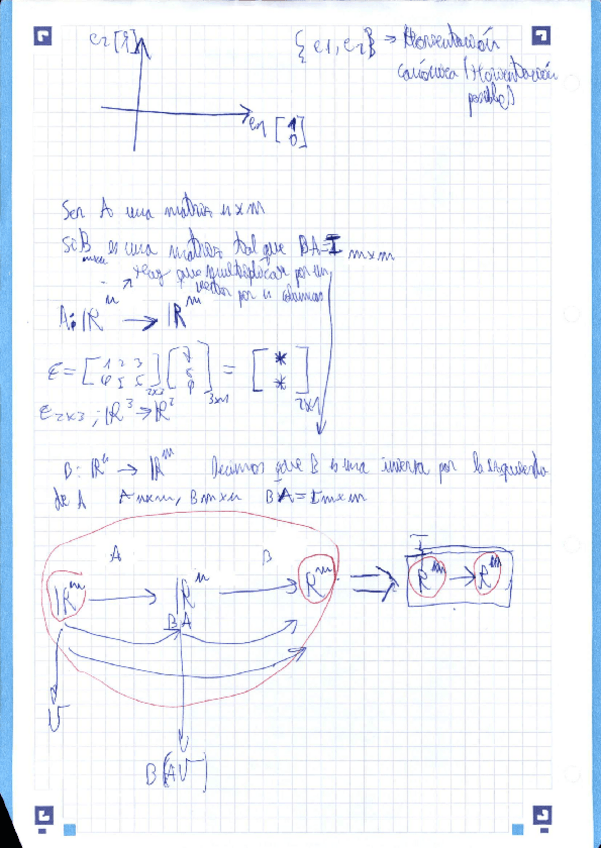 e2 [0 1]
{e1, e2} → Orientación
canónica (Orientación
posible)
e1 [1 0]
Sea A una matriz n x m
Si B es una matriz tal que BA = I mxm
mxn
Hay que multiplicar por un
vector por n columnas
A: ℝᵐ → ℝⁿ
E = [1 2 3 4 5 5]2x3 [ ]3x1 = [* *]2x1
E 2x3 ; ℝ³ → ℝ²
B: ℝⁿ → ℝᵐ Decimos que B es una inversa por la izquierda
de A A nxm, B mxn BA = I mxm
A B I
ℝᵐ → ℝⁿ → ℝᵐ ⇒ ℝᵐ → ℝᵐ
BA
v
B(Av)